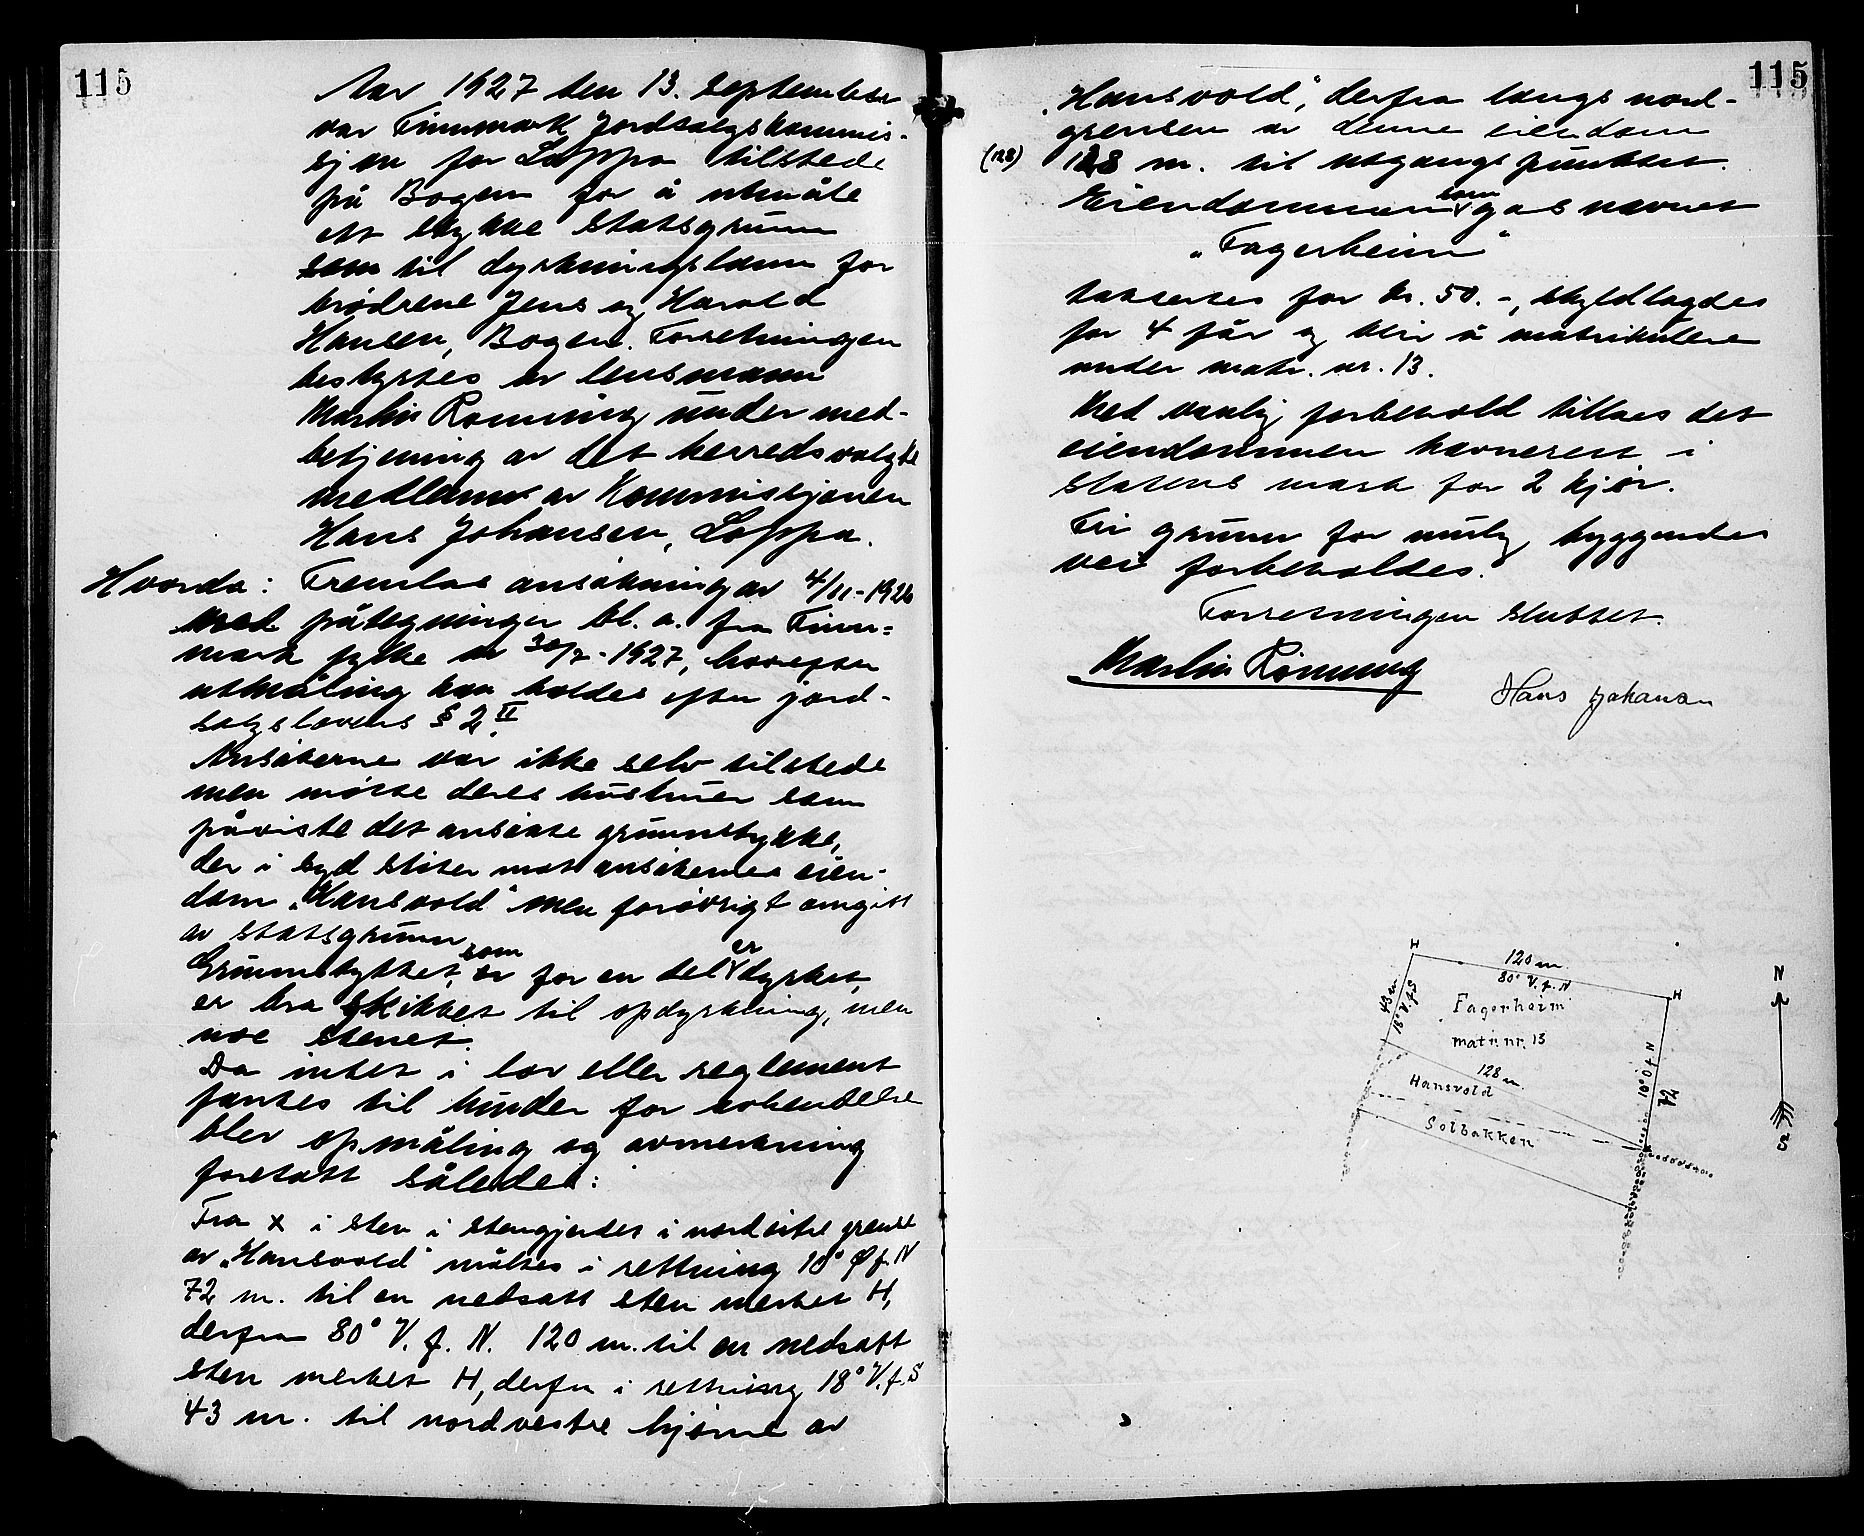 115
Aar 1927 den 13. september
var Finnmark Jordsalgskommis-
sjon for Loppa tilstede
på Bogen for å utmåle
ett stykke statsgrunn
som til dyrkningsland for
brødrene Jens og Harald
Hansen, Bogen. Forretningen
bestyrtes av lensmann
Martin Romming under med-
betjening av det herredsvalgte
medlem av Kommissjonen
Hans Johansen, Loppa.
Hvorda: Fremlaes ansøkning av 4/11-1926
med påtegninger bl. a. fra Finn-
mark fylke av 30/7-1927, hvorefter
utmåling kan holdes efter jord-
salgslovens § 2. II
Ansøkerne var ikke selv tilstede
men møtte deres hustruer som
påviste det ansøkte grunnstykke,
der i syd støter mot ansøkernes eien-
dom „Hansvold" men forøvrigt omgitt
av statsgrunn
Grunnstykket, som er for en del er dyrket,
er bra skikket til opdyrkning, men
noe stenet.
Da intet i lov eller reglement
fantes til hinder for avhendelse
blev opmåling og avmerkning
foretatt således:
Fra x i sten i stengjerdet i nordøstre grense
av „Hansvold" måltes i rettning 10° Ø f. N
72 m. til en nedsatt sten merket H,
derfra 80° V. f. N. 120 m. til en nedsatt
sten merket H, derfra i rettning 18° V. f. S
43 m. til nordvestre hjørne av
115
„Hansvold", derfra langs nord-
grensen av denne eiendom
(128) 128 m. til utgangspunktet.
Eiendommen som gas navnet
„Fagerheim"
takseres for kr. 50.-, skyldlagdes
for 4 får og blir å matrikulere
under matr. nr. 13.
Med vanlig forbehold tillaes det
eiendommen havnerett i
statens mark for 2 kjør.
Fri grunn for mulig byggendes
vei forbeholdes.
Forretningen sluttet.
Martin Romming
Hans Johansen
H
120 m
80° V. f. N
H
43 m
18° V. f. S
Fagerheim
matr. nr. 13
10° Ø f. N
72
128 m.
Hansvold
Solbakken
N
S